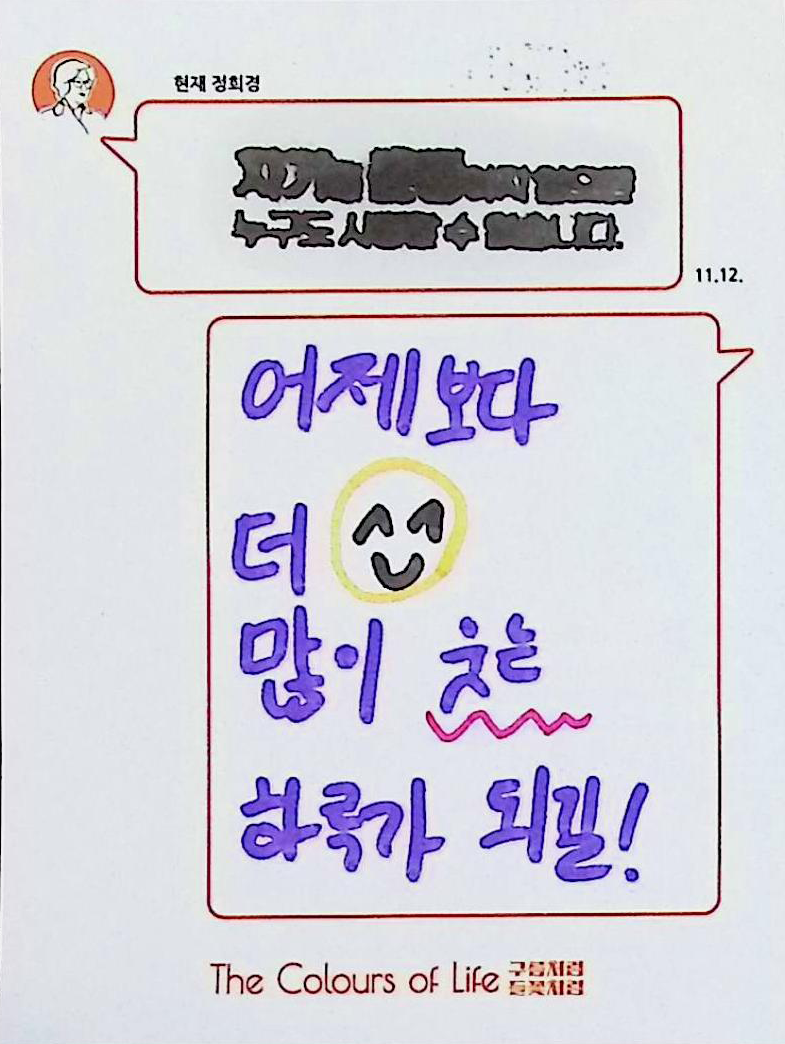 현재 정희경
누구도 수
11.12.
어제보다
더
많이 웃는
하루가 되길!
The Colours of Life 구름처럼
들꽃처럼